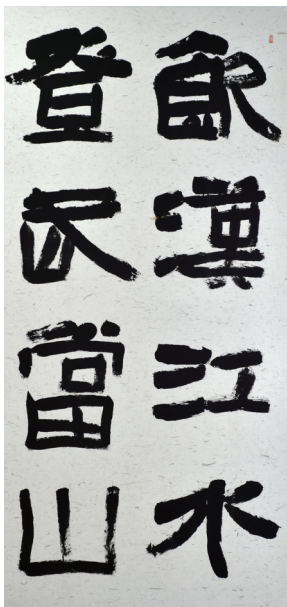 飲漢江水
登武當山